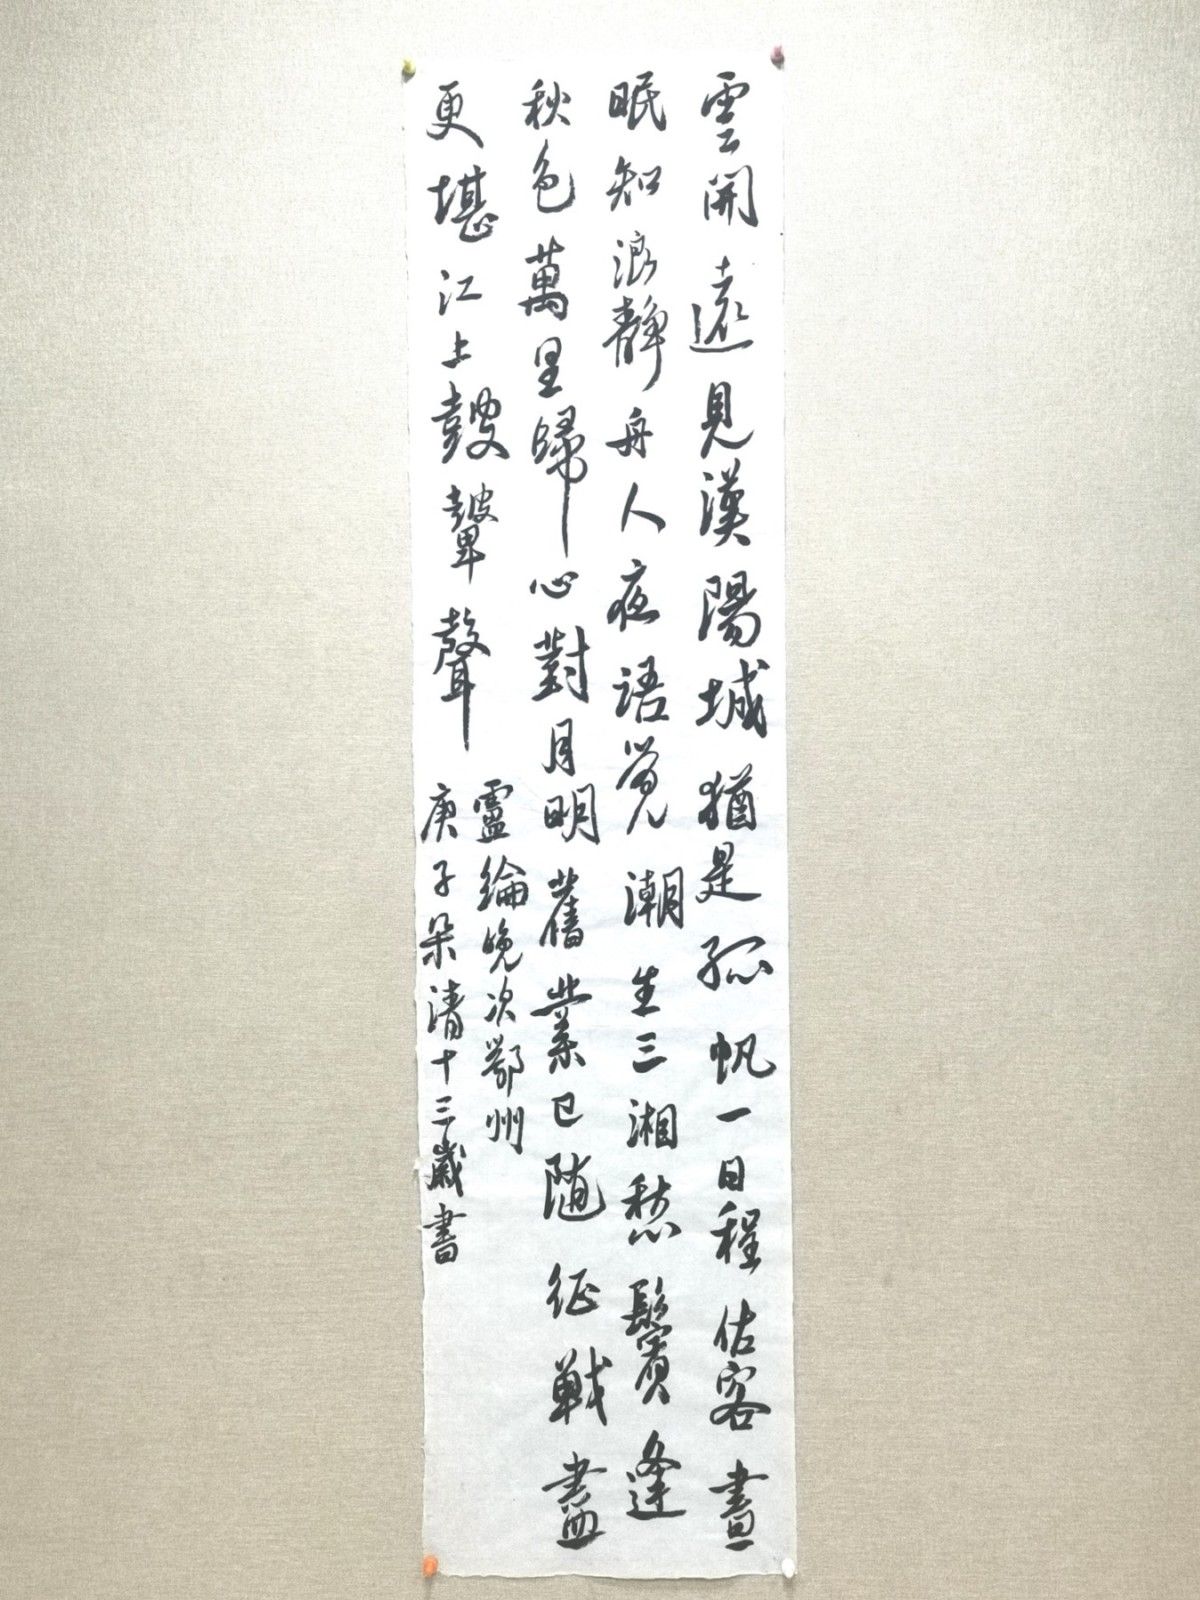 雲開遠見漢陽城猶是孤帆一日程估客晝
眠知浪靜舟人夜語覺潮生三湘愁鬢逢
秋色萬里歸心對月明舊業已隨征戰盡
更堪江上鼓鼙聲
盧綸晚次鄂州
庚子朵清十三歲書